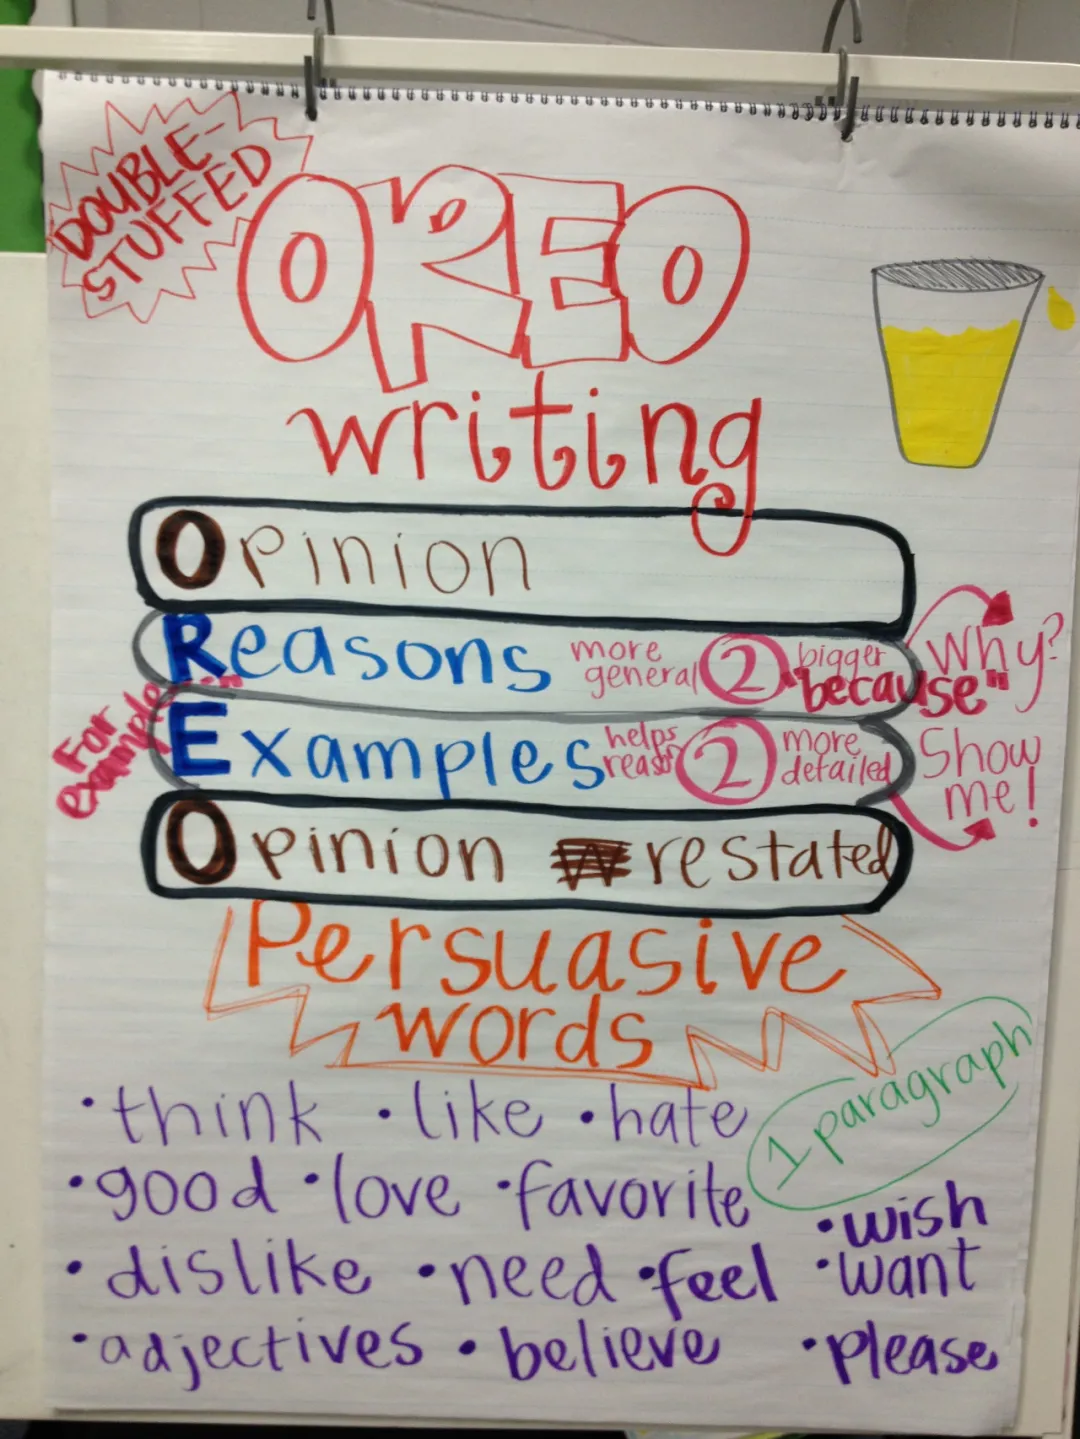 DOUBLE-
STUFFED
OREO
writing
Opinion
Reasons more general 2 bigger "because" Why?
For example...
Examples helps reason 2 more detailed Show me!
Opinion restated
Persuasive
words
1 paragraph
• think • like • hate
• good • love • favorite
• wish
• dislike • need • feel • want
• adjectives • believe • please